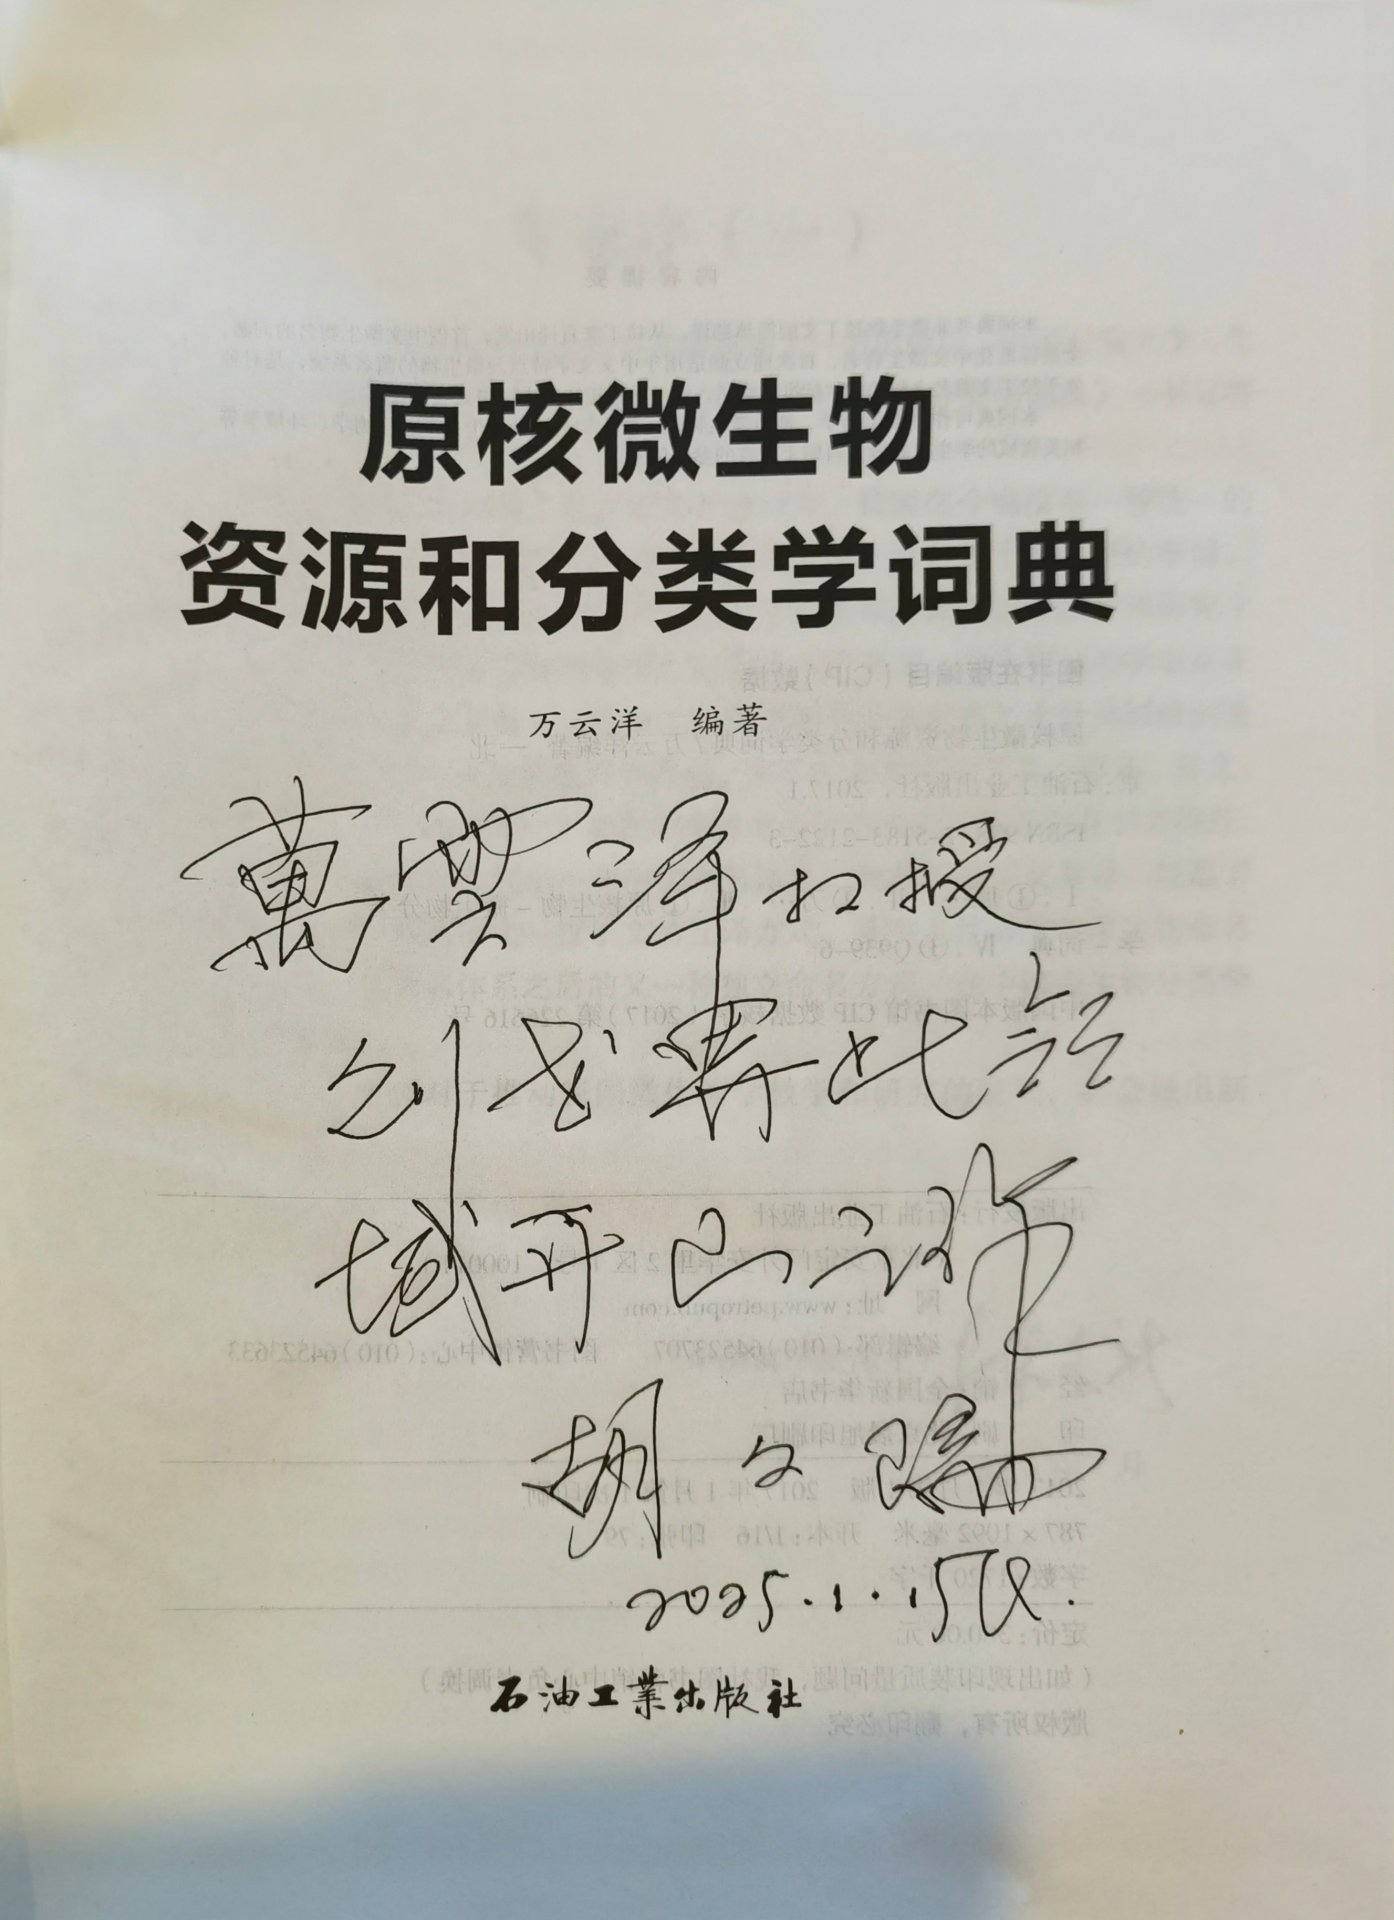 原核微生物
资源和分类学词典
万云洋 编著
萬雲洋教授
创学界此领
域开山之作
胡文瑞
2025.1.15
石油工業出版社